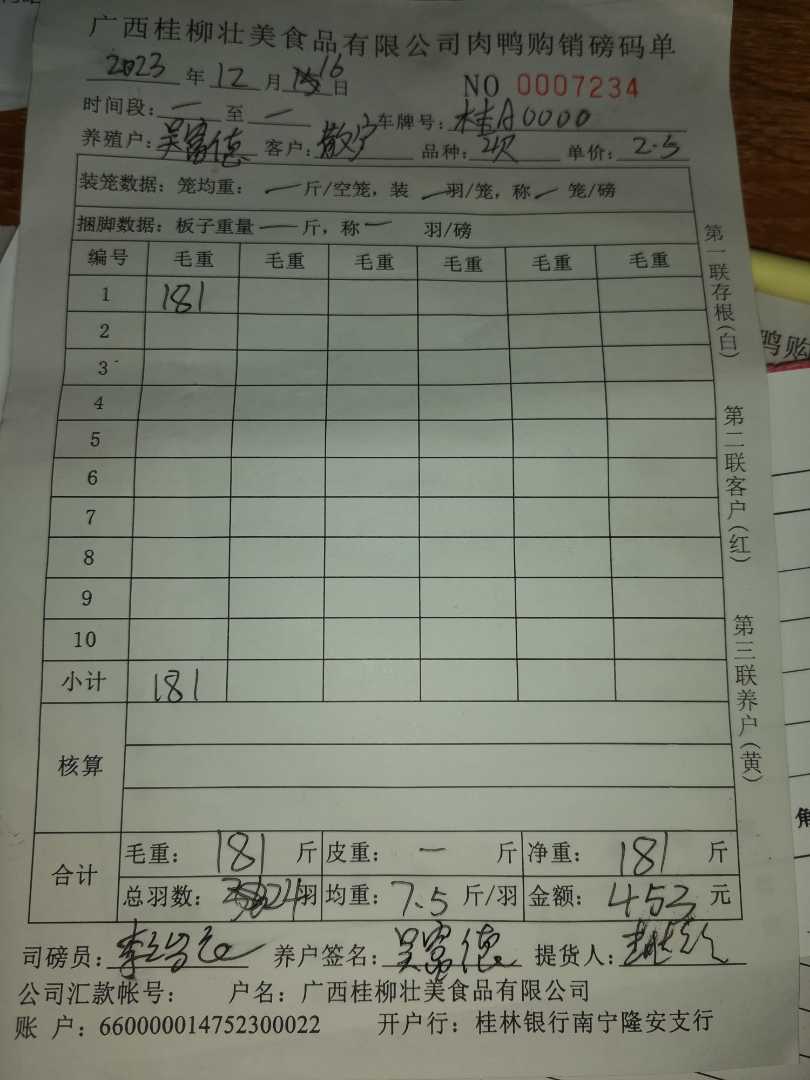 广西桂柳壮美食品有限公司肉鸭购销磅码单
2023年12月16日 NO 0007234
时间段：一至一 车牌号：桂A0000
养殖户：吴富德 客户：散户 品种： 单价：2.5
装笼数据：笼均重：一斤/空笼，装一羽/笼，称一笼/磅
捆脚数据：板子重量一斤，称一羽/磅
编号 毛重 毛重 毛重 毛重 毛重 毛重
1 181
2
3
4
5
6
7
8
9
10
小计 181
核算
合计 毛重：181斤 皮重：一斤 净重：181斤
总羽数：24羽 均重：7.5斤/羽 金额：453元
司磅员： 养户签名：吴富德 提货人：
公司汇款帐号： 户名：广西桂柳壮美食品有限公司
账 户：660000014752300022 开户行：桂林银行南宁隆安支行
第一联存根(白)
第二联客户(红)
第三联养户(黄)
鸭购